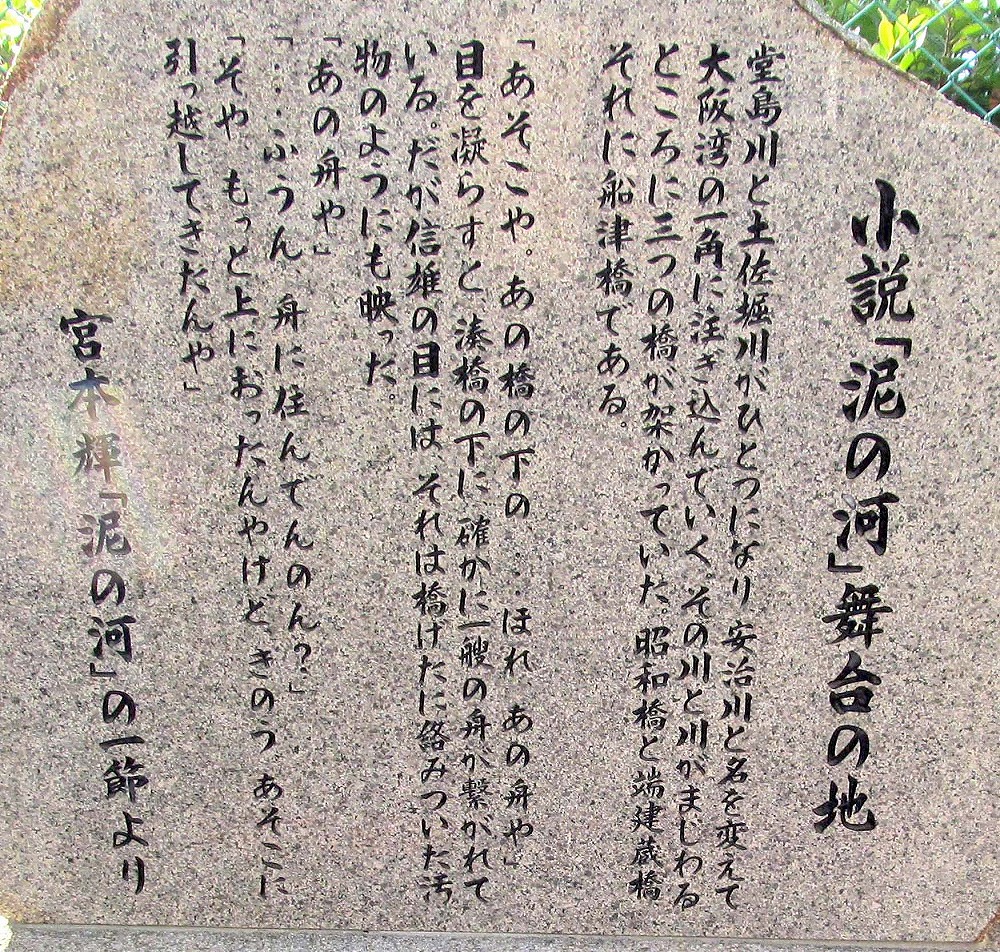 小説「泥の河」舞台の地
堂島川と土佐堀川がひとつになり 安治川と名を変えて
大阪湾の一角に注ぎ込んでいく。その川と川がまじわる
ところに三つの橋が架かっていた。昭和橋と端建蔵橋
それに船津橋である。
「あそこや。あの橋の下の‥‥ほれ、あの舟や」
目を凝らすと、湊橋の下に、確かに一艘の舟が繋がれて
いる。だが信雄の目には、それは橋げたに絡みついた汚
物のようにも映った。
「あの舟や」
「‥‥ふうん、舟に住んでんのん？」
「そや、もっと上におったんやけど、きのう あそこに
引っ越してきたんや」
宮本輝「泥の河」の一節より